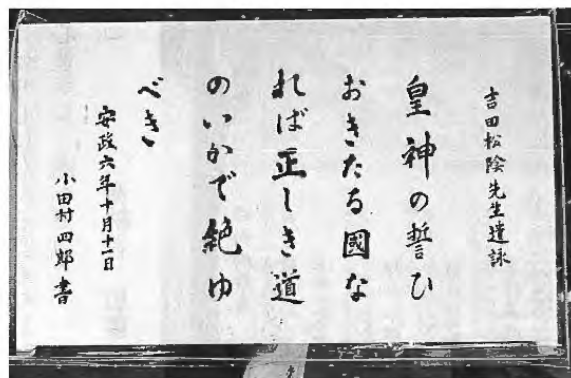 吉田松陰先生遺詠
皇神の誓ひ
おきたる國な
れば正しき道
のいかで絶ゆ
べき
安政六年十月十一日
小田村四郎書